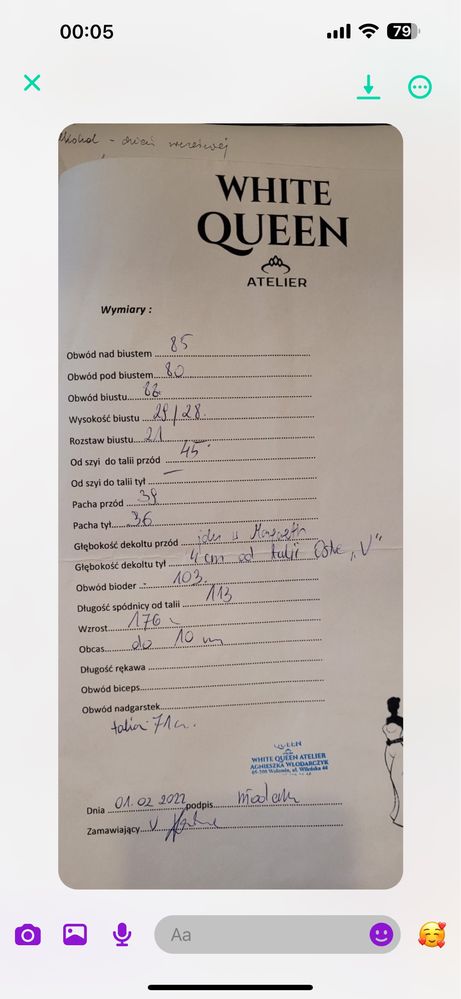 00:05
79
- dzień wcześniej
WHITE
QUEEN
ATELIER
Wymiary :
Obwód nad biustem 85
Obwód pod biustem 80
Obwód biustu 88
Wysokość biustu 29/28
Rozstaw biustu 21
Od szyi do talii przód 45
Od szyi do talii tył —
Pacha przód 39
Pacha tył 36
Głębokość dekoltu przód
Głębokość dekoltu tył 4 cm od talii "V"
Obwód bioder 103
Długość spódnicy od talii 113
Wzrost 176
Obcas do 10 cm
Długość rękawa
Obwód biceps
Obwód nadgarstek
talia 71 cm.
QUEEN
WHITE QUEEN ATELIER
AGNIESZKA WŁODARCZYK
05-200 Wołomin, ul. Wileńska
Dnia 01.02.2022 podpis
Zamawiający
Aa